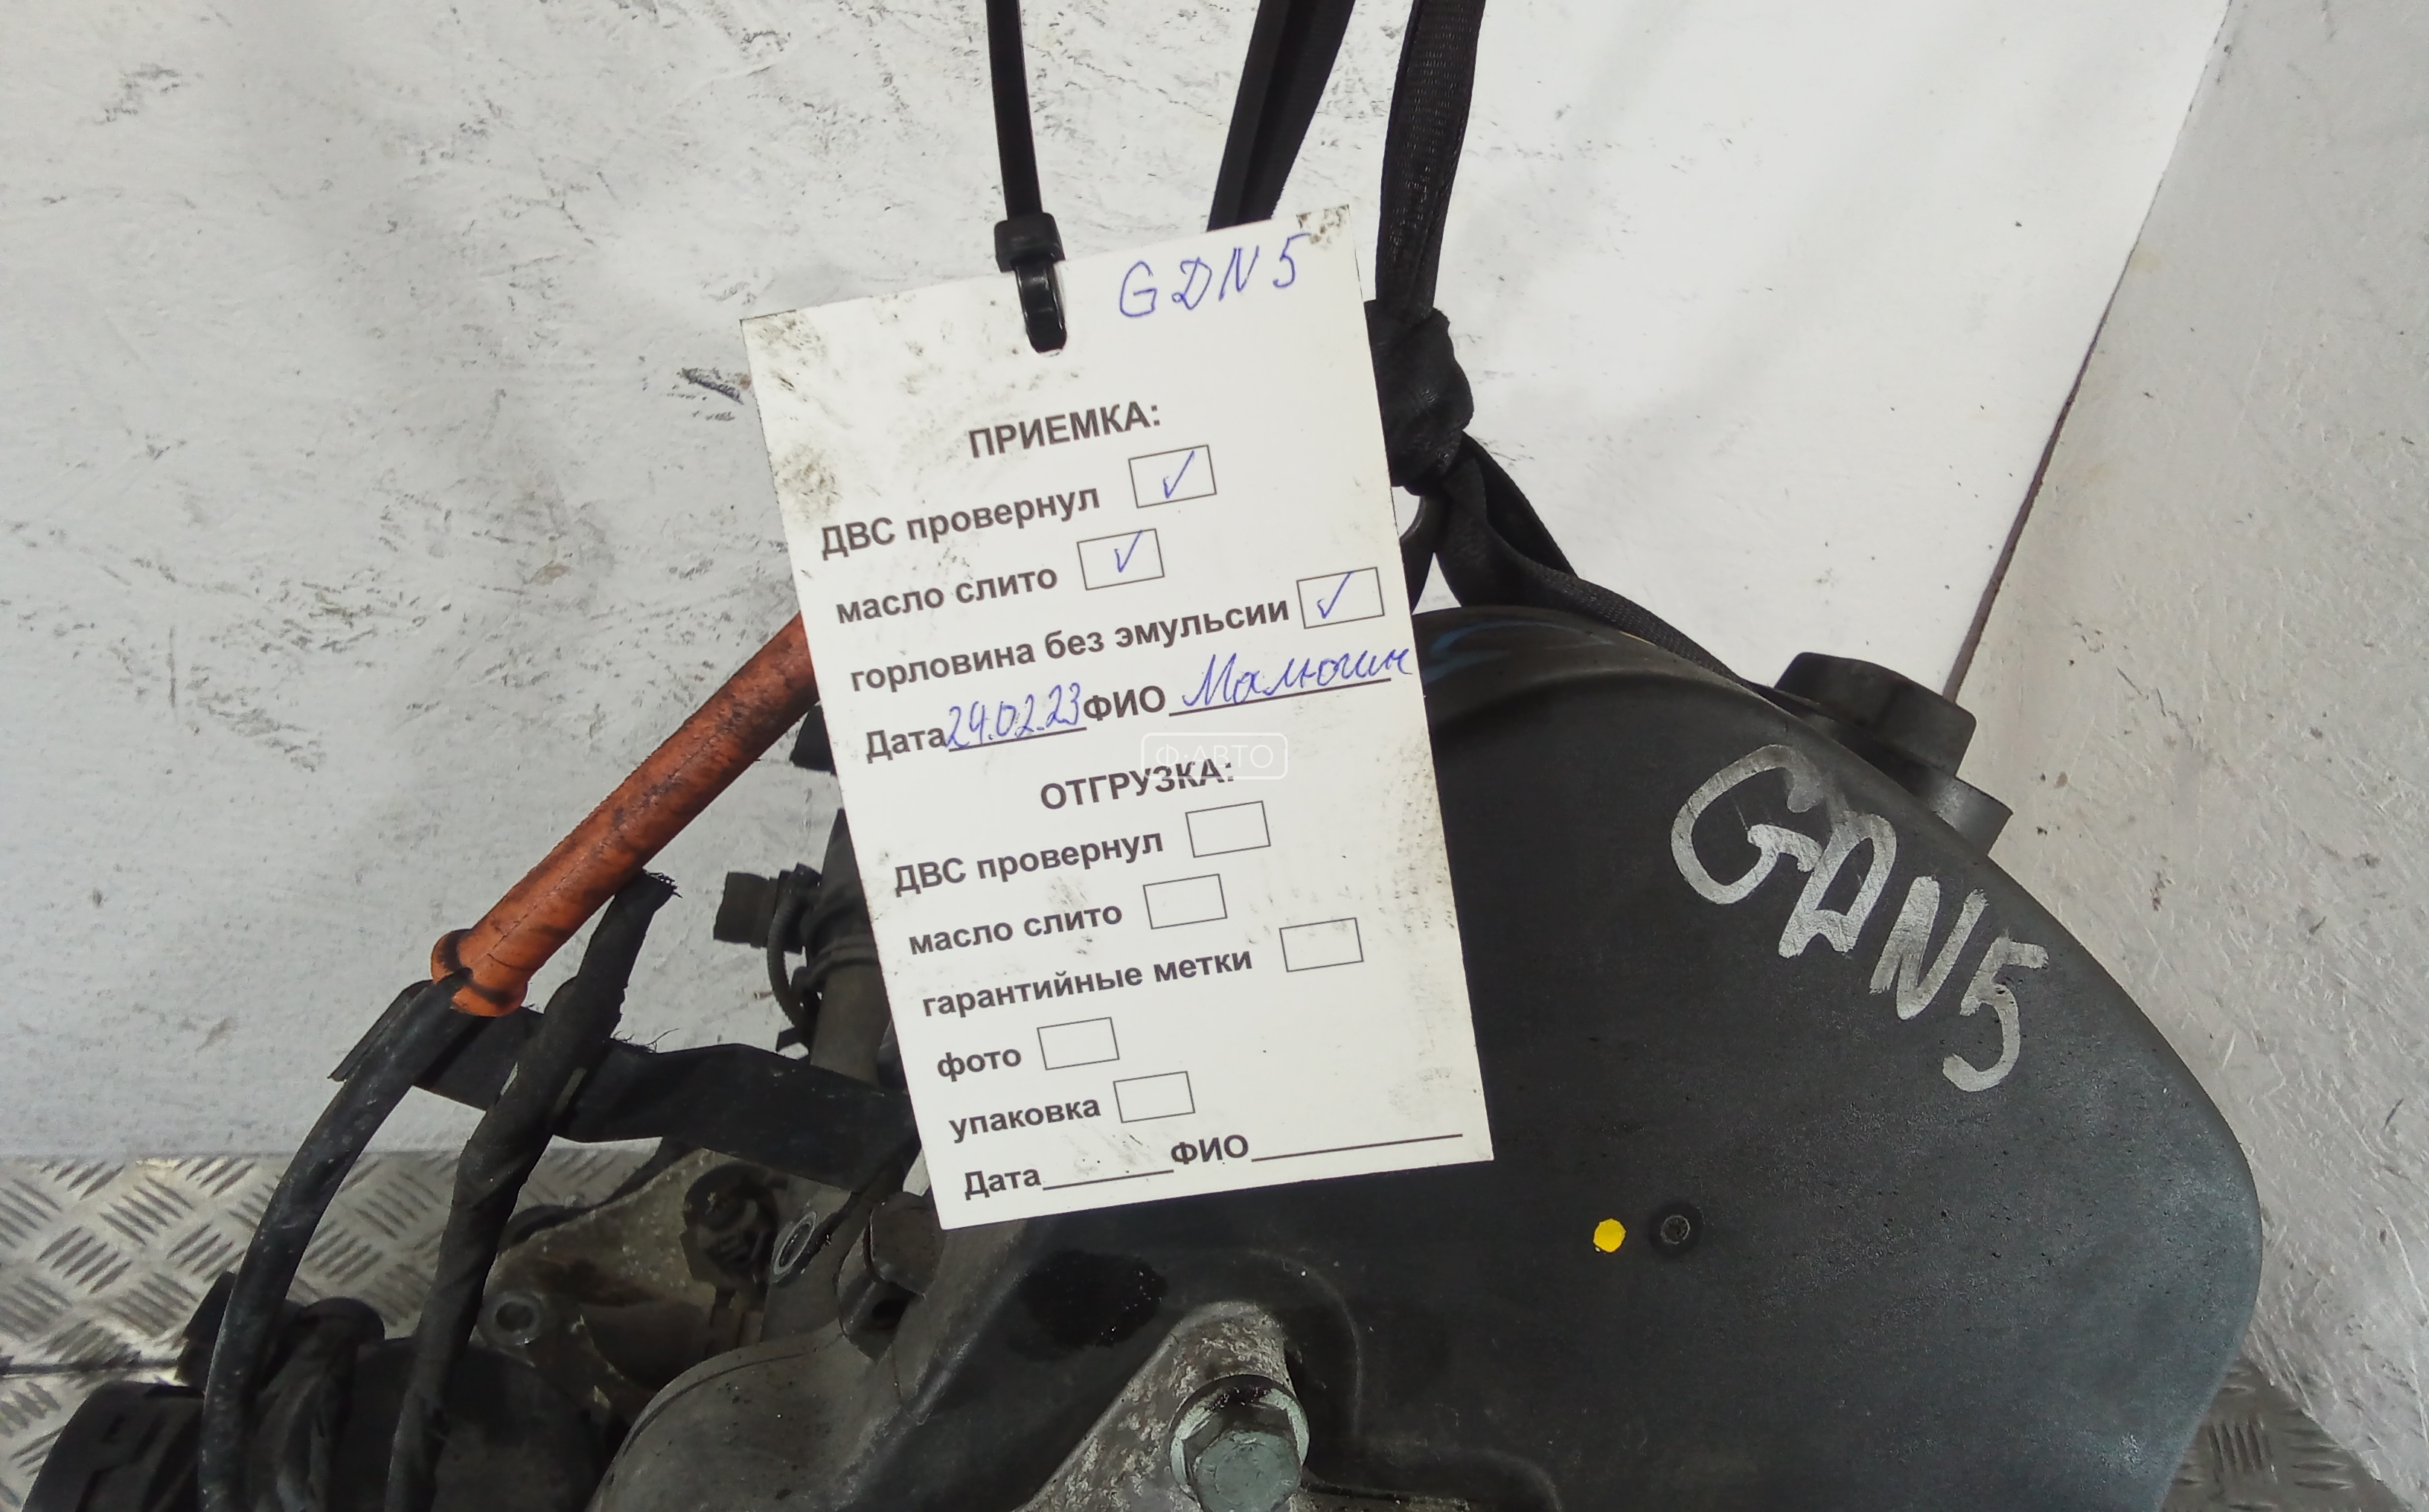 GDN5
ПРИЕМКА:
ДВС провернул ✓
масло слито ✓
горловина без эмульсии ✓
Дата 24.02.23 ФИО Малюгин
Ф·АВТО
ОТГРУЗКА:
ДВС провернул
масло слито
гарантийные метки
фото
упаковка
Дата______ФИО__________
GDN5